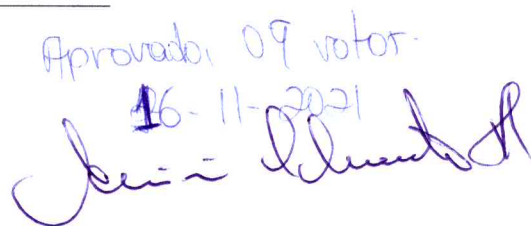 Aprovado, 09 votos.
16-11-2021